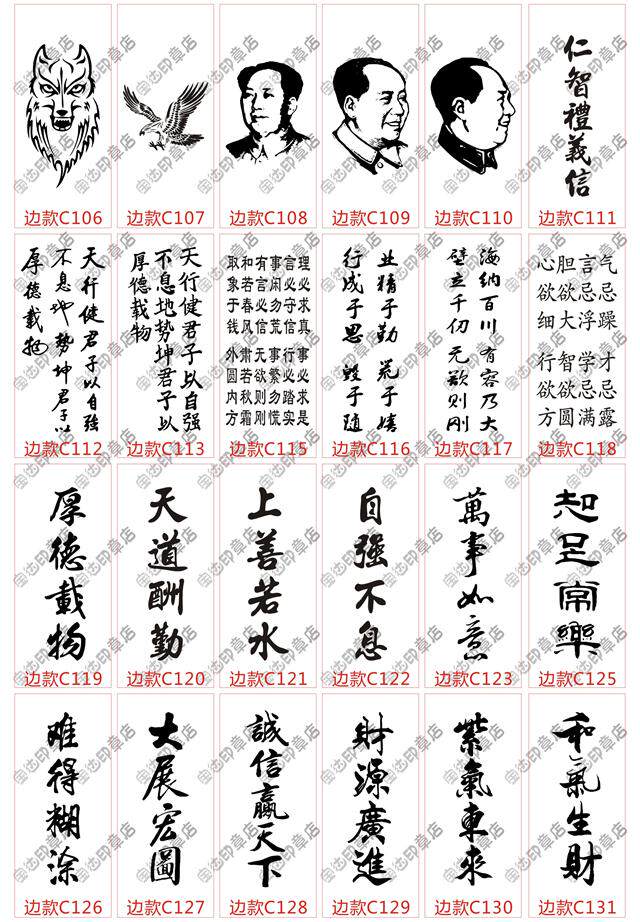 边款C106
边款C107
边款C108
边款C109
边款C110
仁智禮義信
边款C111
天行健君子以自强
不息地势坤君子以
厚德载物
边款C112
天行健君子以自强
不息地势坤君子以
厚德载物
边款C113
理必求真 事必求是
言必守信 行必踏实
事闲勿荒 事繁勿慌
有言必信 无欲则刚
和若春风 肃若秋霜
取象于钱 外圆内方
边款C115
业精于勤 荒于嬉
行成于思 毁于随
边款C116
海纳百川 有容乃大
壁立千仞 无欲则刚
边款C117
气忌躁 才忌露
言忌浮 学忌满
胆欲大 智欲圆
心欲细 行欲方
边款C118
厚德載物
边款C119
天道酬勤
边款C120
上善若水
边款C121
自强不息
边款C122
萬事如意
边款C123
知足常樂
边款C125
难得糊涂
边款C126
大展宏圖
边款C127
誠信贏天下
边款C128
財源廣進
边款C129
紫氣東來
边款C130
和氣生財
边款C131
宝达印章店